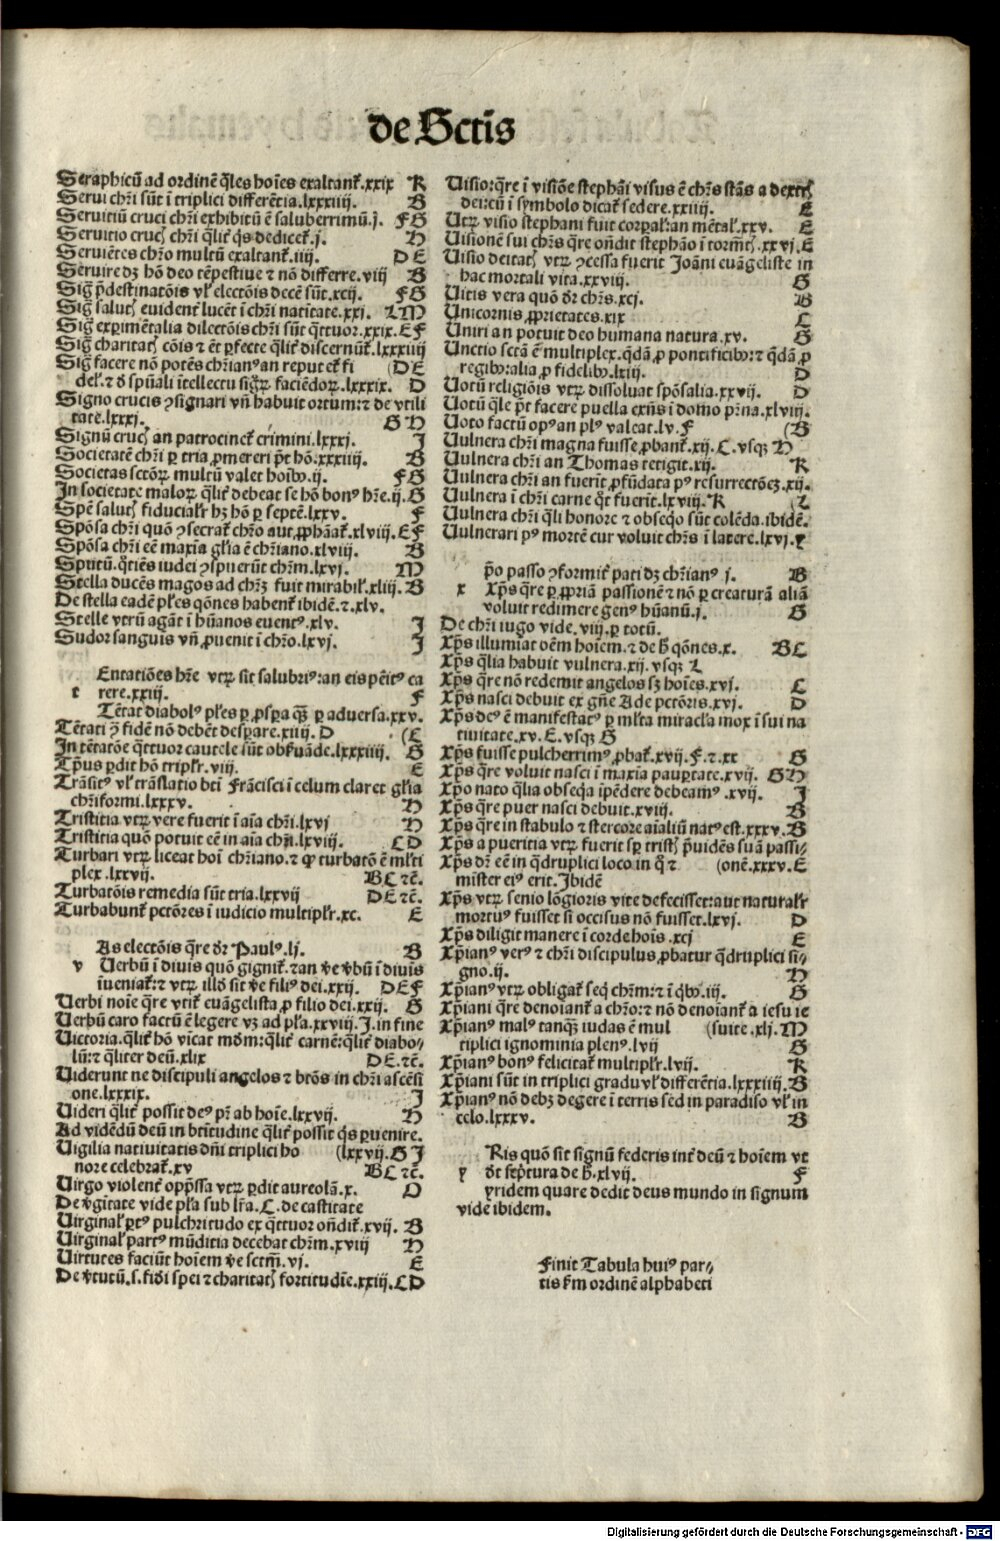 de Sctis
Seraphicū ad ordinē q̄les hoīes exaltant᷑.xxix K
Serui chr̄i sūt ī triplici differētia.lxxxiiij. B
Seruitiū cruci chr̄i exhibitū ē saluberrimū.j. F G
Seruitio cruc̨ chr̄i q̄lit᷑ q̄s dedicet᷑.j. H
Seruiētes chr̄o multū exaltant᷑.iiij. D E
Seruire dꝫ hō deo tēpestiue ⁊ nō differre.viij B
Sig͂ p̄destinatōis vl᷑ electōis decē sūt.xcij. F G
Sig͂ saluc̨ euident᷑ lucēt ī chr̄i natītate.xxj. L M
Sig͂ exꝑimētalia dilectōis chr̄i sūt q̄ttuor.xxix.E F
Sig͂ charitac̨ cōis ⁊ ēt ꝑfecte q̄lit᷑ discernūt᷑.lxxxiiij
Sig͂ facere nō potēs chr̄ianꝰ an reputet᷑ fi (D E
del᷑.⁊ ꝺ spūali ītellectu sig͂ꝝ faciēdoꝝ.lxxxix. D
Signo crucis ꝯsignari vn̄ habuit ortum:⁊ de vtili
tate.lxxxj. G H
Signū cruc̨ an patrocinet᷑ crimini.lxxxj. J
Societatē chr̄i ꝑ tria ꝓmereri pōt hō.xxxiiij. B
Societas sctōꝝ multū valet hoīb.ij. F G
In societate maloꝝ q̄lit᷑ debeat se hō bonꝰ hr̄e.ij. G
Spē saluc̨ fiducialr᷑ hꝫ hō ꝑ septē.lxxv. F
Spōsa chr̄i quō ꝯsecrat᷑ chr̄o aut ꝓphāat᷑.xlviij.E F
Spōsa chr̄i eē maxīa glīa ē chr̄iano.xlviij. B
Sputū.q̄tiēs iudei ꝯspuerūt chr̄m.lxvj. M
Stella ducēs magos ad chr̄ꝫ fuit mirabil᷑.xliij. B
De stella eadē pl᷑es qōnes habent᷑ ibidē.⁊.xlv.
Stelle vtrū agāt ī hūanos euentꝰ.xlv. J
Sudor sanguis vn̄ ꝓuenit ī chr̄o.lxvj. J
Entatiōes hr̄e vtꝝ sit salubriꝰ:an eis penitꝰ ca
t rere.xxiij. F
Tētat diabolꝰ pl᷑es ꝑ ꝓsꝑa q̄ꝫ ꝑ aduersa.xxv.
Tētati ꝯ fidē nō debēt desꝑare.xiiij. D (C
In tētatōe q̄ttuor cautele sūt obẛuāde.lxxxiiij. G
Tp̄us ꝑdit hō triplr᷑.viij. E
Trāsitꝰ vl᷑ trāslatio bt̄i Frācisci ī celum claret gl̄ia
chr̄iformi.lxxxv. H
Tristitia vtꝝ vere fuerit ī aīa chr̄i.lxvj H
Tristitia quō potuit eē in aīa chr̄i.lxviij. C D
Turbari vtꝝ liceat hoī chr̄iano.⁊ ꝙ turbatō ē ml᷑ti
plex.lxxvij. B C ⁊c̄.
Turbatōis remedia sūt tria.lxxvij D E ⁊c̄.
Turbabunt᷑ pctōres ī iudicio multiplr᷑.xc. E
As electōis q̄re dr̄ Paulꝰ.lj. B
v Uerbū ī diuis quō gignit᷑.⁊an v̄e v̄bū ī diuis
īueniat᷑:⁊ vtꝝ illd̄ sit v̄e filiꝰ dei.xxij. D E F
Uerbi noīe q̄re vtit᷑ euāgelista ꝓ filio dei.xxij. G
Uerbū caro factū ē legere vꝫ ad pl᷑a.xxviij.J.in fine
Uictoria.q̄lit᷑ hō vicat mdm̄:q̄lit᷑ carnē:q̄lit᷑ diabo-
lū:⁊ q̄liter deū.xlix D E.⁊c̄.
Uiderunt ne discipuli angelos ⁊ btōs in chr̄i ascēsi
one.lxxxix. J
Uideri q̄lit᷑ possit deꝰ pr̄ ab hoīe.lxxvij. H
Ad vidēdū deū in btītudine q̄lit᷑ possit q̄s ꝑuenire.
Uigilia natiuitatis dn̄i triplici ho (lxxvij.G J
nore celebrat᷑.xv B C ⁊c̄.
Uirgo violent᷑ opp̄ssa vtꝝ ꝑdit aureolā.x. O
De v̄gītate vide pl᷑a sub lr̄a.C.de castitate
Uirginal᷑ ꝑtꝰ pulchritudo ex q̄ttuor on̄dit᷑.xvij. B
Uirginal᷑ partꝰ mūditia decebat chr̄m.xviij H
Uirtutes faciūt hoīem v̄e sctm̄.vj. E
De v̄tutū.s.fidei spei ⁊ charitac̨ fortitudīe.xxiij.C D
Uisio:q̄re ī visiōe stephāi visus ē chr̄s stās a dextr̨
dei:cū ī symbolo dicat᷑ sedere.xxiiij. E
Utꝝ visio stephani fuit corꝑal᷑:an mētal᷑.xxv. E
Uisionē sui chr̄s q̄re on̄dit stephāo ī tormēt̨.xxvj.E
Uisio deitac̨ vtꝝ ꝯcessa fuerit Joāni euāgeliste in
hac mortali vita.xxviij. G
Uitis vera quō dr̄ chr̄s.xcj. B
Unicornis ꝓprietates.xix C
Uniri an potuit deo humana natura.xv. G
Unctio sctā ē multiplex.q̄dā ꝓ pontificib:⁊ q̄dā ꝓ
regib:alia ꝓ fidelib.lxiij. D
Uotū religiōis vtꝝ dissoluat spōsalia.xxvij. D
Uotū q̄le pōt facere puella exn̄s ī domo pr̄na.xlviij.
Uoto factū opꝰ an plꝰ valeat.lv.F (B
Uulnera chr̄i magna fuisse ꝓbant᷑.xij.C.vsqꝫ H
Uulnera chr̄i an Thomas tetigit.xij. K
Uulnera chr̄i an fuerit ꝓfūdata pꝰ resurrectōeꝫ.xij.
Uulnera ī chr̄i carne q̄t fuerīt.lxviij.K (L
Uulnera chr̄i q̄li honore ⁊ obseq̄o sūt colēda.ibidē.
Uulnerari pꝰ mortē cur voluit chr̄s ī latere.lxvj.P
p̄o passo ꝯformit᷑ pati dꝫ chr̄ianꝰ j. B
x Xp̄s q̄re ꝑ ꝓpriā passionē ⁊ nō ꝑ creaturā aliā
voluit redimere genꝰ hūanū.j. G
De chr̄i iugo vide.viij.ꝑ totū.
Xp̄s illumiat oēm hoīem.⁊ de h̄ qōnes.x. B C
Xp̄s q̄lia habuit vulnera.xij.vsqꝫ L
Xp̄s q̄re nō redemit angelos sꝫ hoīes.xvj. C
Xp̄s nasci debuit ex gn̄e Ade pctōris.xvj. D
Xp̄s deꝰ ē manifestatꝰ ꝑ ml᷑ta miracl᷑a mox ī sui na
tiuitate.xv.E.vsqꝫ G
Xp̄s fuisse pulcherrimꝰ ꝓbat᷑.xvij.F.⁊.xx G
Xp̄s q̄re voluit nasci ī maxīa pauꝑtate.xvij. G H
Xp̄o nato q̄lia obseq̄a ipēdere debeamꝰ.xvij. J
Xp̄s q̄re puer nasci debuit.xviij. B
Xp̄s q̄re in stabulo ⁊ stercore aīaliū natꝰ est.xxxv.B
Xp̄s a pueritia vtꝝ fuerit sꝑ trist̨ p̄uidēs suā passi-
Xp̄s dꝫ eē in q̄druplici loco in q̄ ⁊ (onē.xxxv.E
mister eiꝰ erit.Ibidē
Xp̄s vtꝝ senio lōgioris vite defecisset:aut naturalr᷑
mortuꝰ fuisset si occisus nō fuisset.lxvj. D
Xp̄s diligit manere ī corde hoīs.xcj E
Xp̄ianꝰ verꝰ ⁊ chr̄i discipulus ꝓbatur q̄druplici si-
gno.ij. H
Xp̄ianꝰ vtꝝ obligat᷑ seq̄ chr̄m:⁊ ī q̄b.iij. G
Xp̄iani q̄re denoīant᷑ a chr̄o:⁊ nō denoīant᷑ a iesu ie
Xp̄ianꝰ malꝰ tanq̄ꝫ iudas ē mul (suite.xlj.M
tiplici ignominia plenꝰ.lvij G
Xp̄ianꝰ bonꝰ felicitat᷑ multiplr᷑.lvij. K
Xp̄iani sūt in triplici gradu vl᷑ differētia.lxxxiiij.B
Xp̄ianꝰ nō debꝫ degere ī terris sed in paradiso vl᷑ in
celo.lxxxv. B
Ris quō sit signū federis int᷑ deū ⁊ hoīem vt
y dt̄ scptura de h̄.xlvij. F
yridem quare dedit deus mundo in signum
vide ibidem.
Finit Tabula huiꝰ par-
tis ẜm ordinē alphabeti
Digitalisierung gefördert durch die Deutsche Forschungsgemeinschaft - DFG